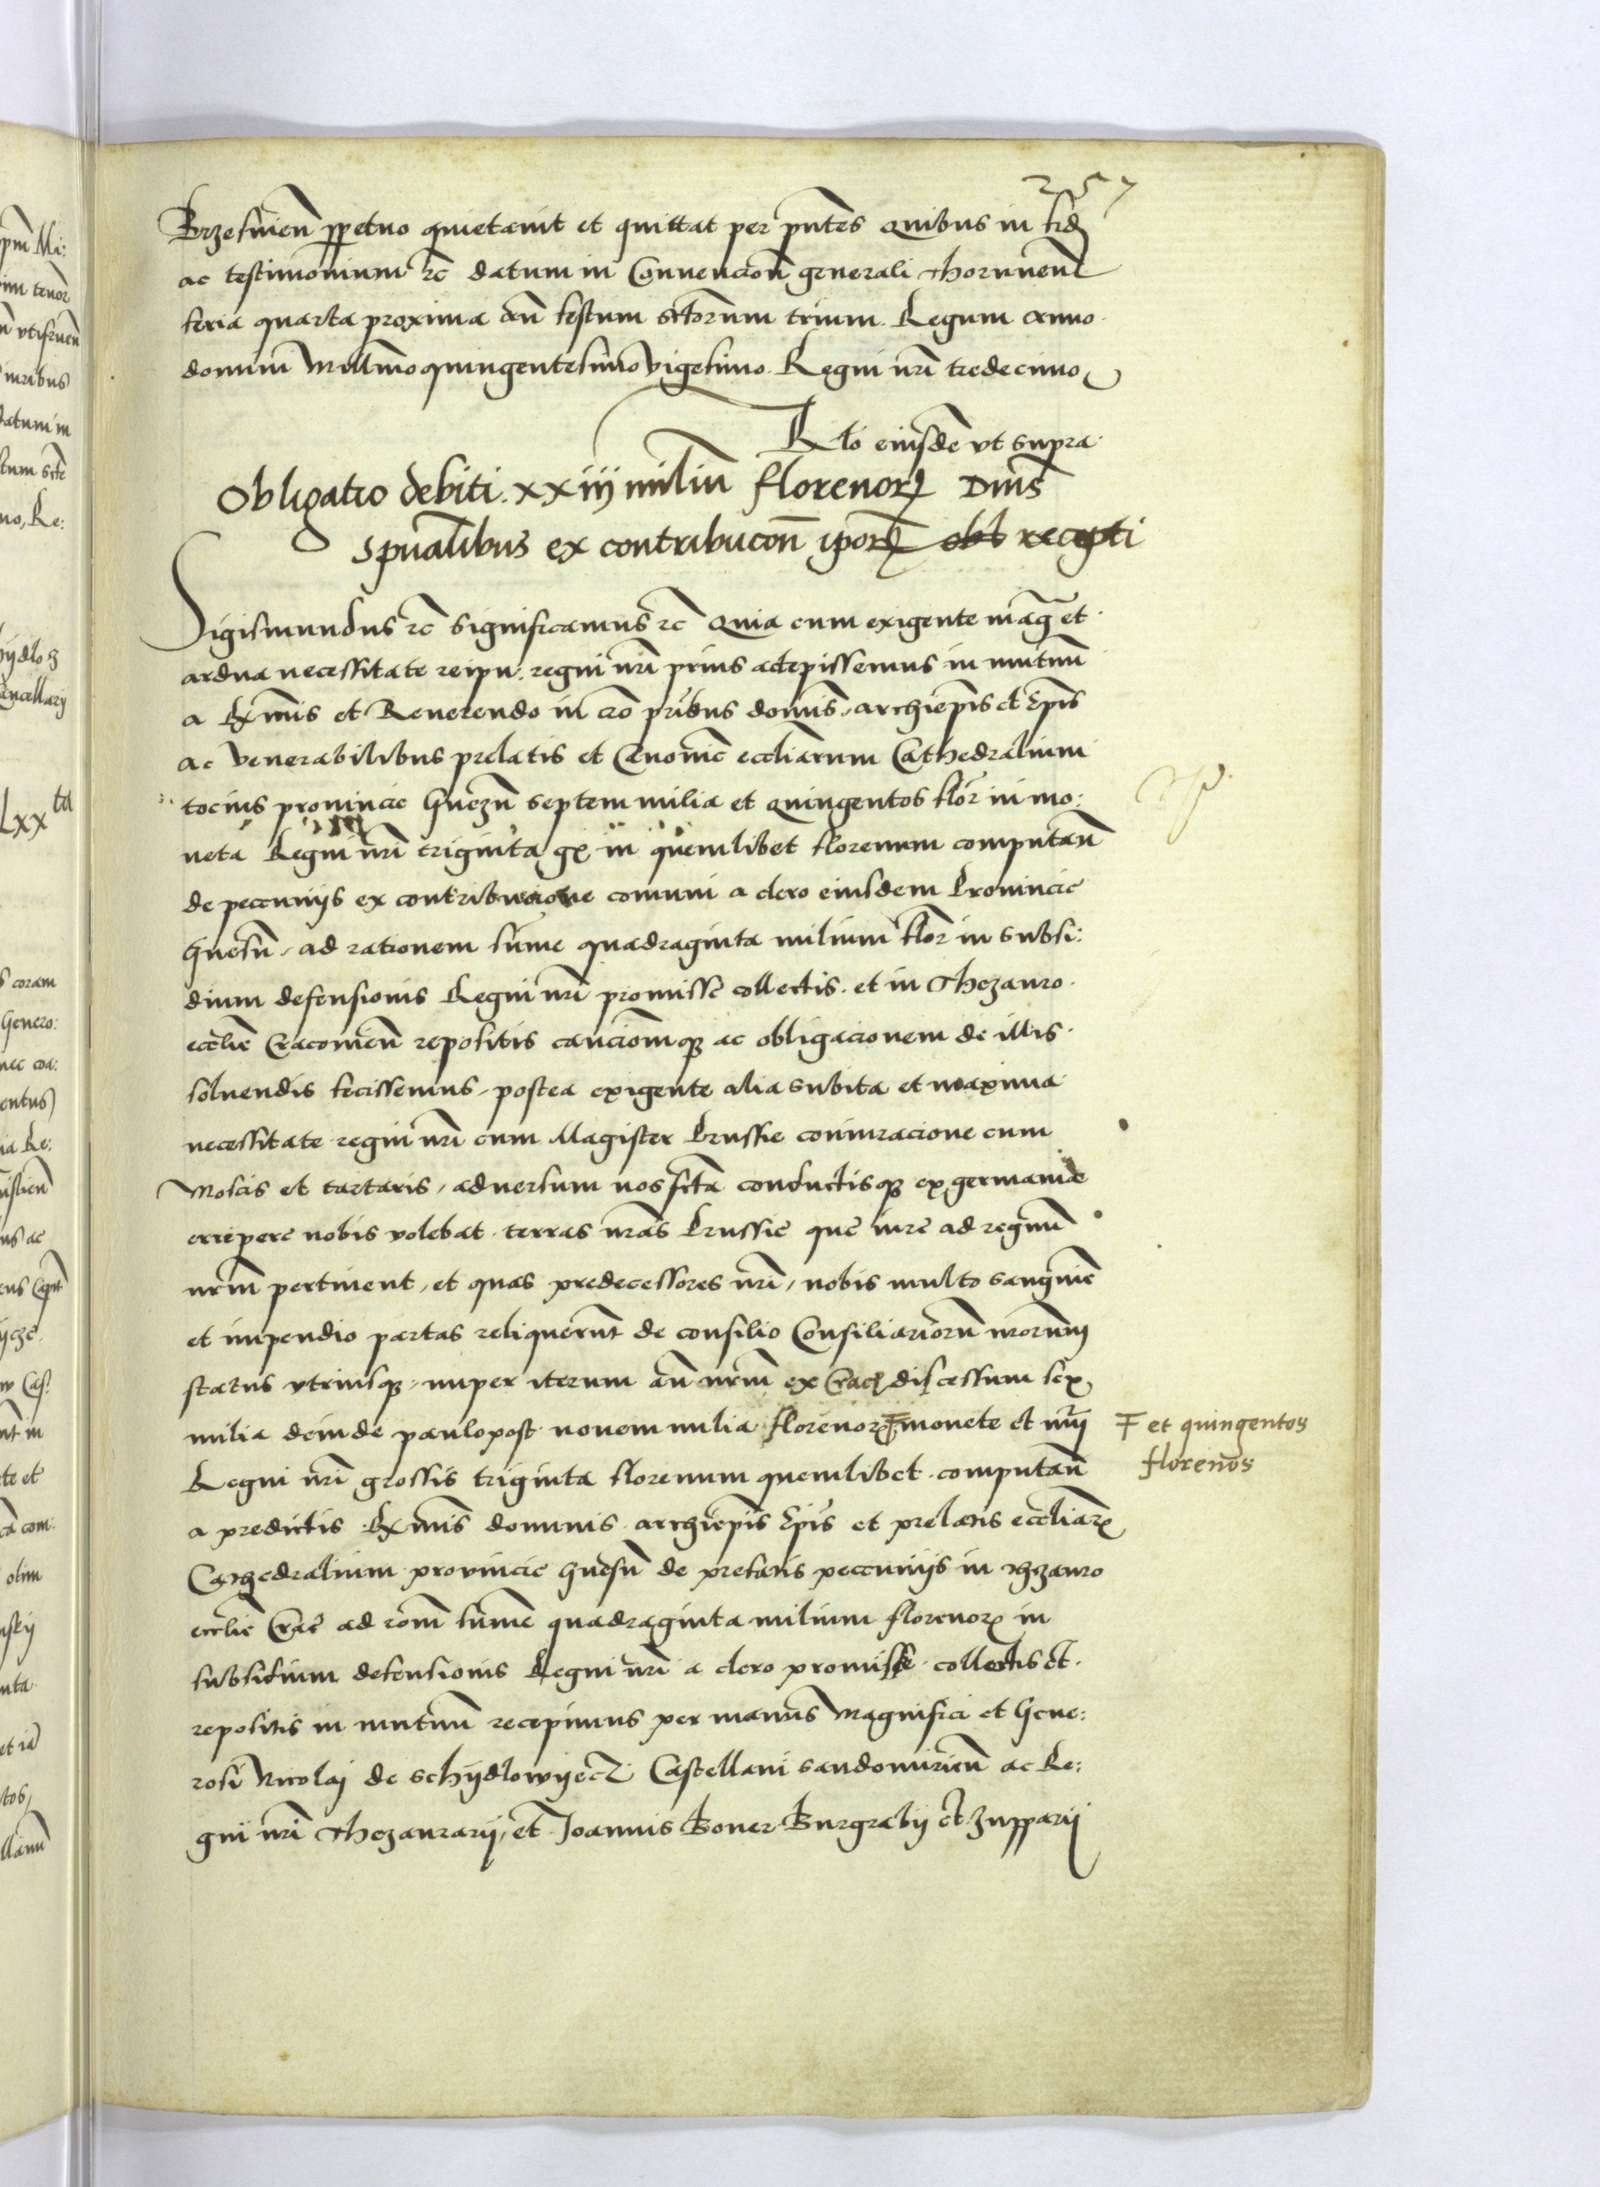 257
Brzesinen̄ ꝑpetuo quietavit et quittat per pn̄tes Quibus in fid
ac testimonium rc̄ datum in Convencion̄ generali Thorunen̄
feria quarta proxima an̄ festum sctorum trium Regum anno
domini Millmo quingentesimo vigesimo Regni nri tredecimo
Rlo eiusdē vt supra
Obligatio debiti xxiij miliū florenorꝝ Dnis
spūalibus ex contribucōn ipōrꝝ obl recepti
Sigismundus rc̄ Significamus rc̄ Quia cum exigente mag et
ardua necessitate reipu: regni nri prius accepissemus in mutuū
a Rx̄mis et Reverendo in cro pribus dominis archiepis et Epis
ac venerabilibus prelatis et Canonic ecctiarum Cathedralium
tocius provincie Gnezn̄ septem milia et quingentos flor in mo:
neta Regni nri triginta gꝝ in quemlibet florenum computan̄
de peccunijs ex contribucione comuni a clero eiusdem Provincie
Gnesn̄ ad rationem sum̄e quadraginta milium flor in subsi:
dium defensionis Regni nri promisse collectis et in Thezauro
ecctie Cracovien̄ repositis caucionemqꝫ ac obligacionem de illis
solvendis fecissemus, postea exigente alia subita et maxima
necessitate regni nri cum Magister Prussie coniuracione cum
Moscis et tartaris, adversum nos fcta conductisqꝫ ex germania
erripere nobis volebat terras nras Prussie que iure ad regnū
nrm pertinent, et quas predecessores nri, nobis multo sanguine
et impendio partas reliquerunt de consilio Consiliariorū nrorum
status vtriusqꝫ nuper iterum an̄ nrm ex Crac discessum sex
milia deinde paulopost novem milia florenorꝝ ₣ monete et nrj
₣ et quingentos
florenos
Regni nri grossis triginta florenum quemlibet computan̄
a predictis Rx̄mis dominis archiepis Epis et prelatis ecctiarꝝ
Cathedralium provincie Gnesn̄ de prefatis peccunijs in Thezauro
ecctie Crac̄ ad ron̄ sum̄e quadraginta milium florenorꝝ in
subsidium defensionis Regni nri a clero promisse collectis et
repositis in mutuū recepimus per manus Magnifici et Gene:
rosi Nicolaj de Schijdlowyecz Castellani Sandomirien̄ ac Re:
gni nri Thezaurarij, et Joannis Boner Burgrabij et Zupparij